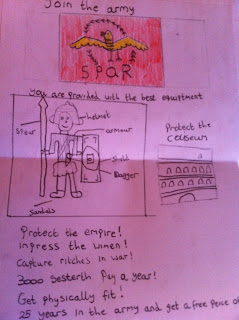 Join the army
SPQR
You are provided with the best equiptment
helmet
Spear
armour
Sheild
Dagger
Sandals
Protect the
Coloseum
Protect the empire!
Impress the women!
Capture ritches in war!
3000 Sesterth Pay a year!
Get physically fit!
25 years in the army and get a free peice of